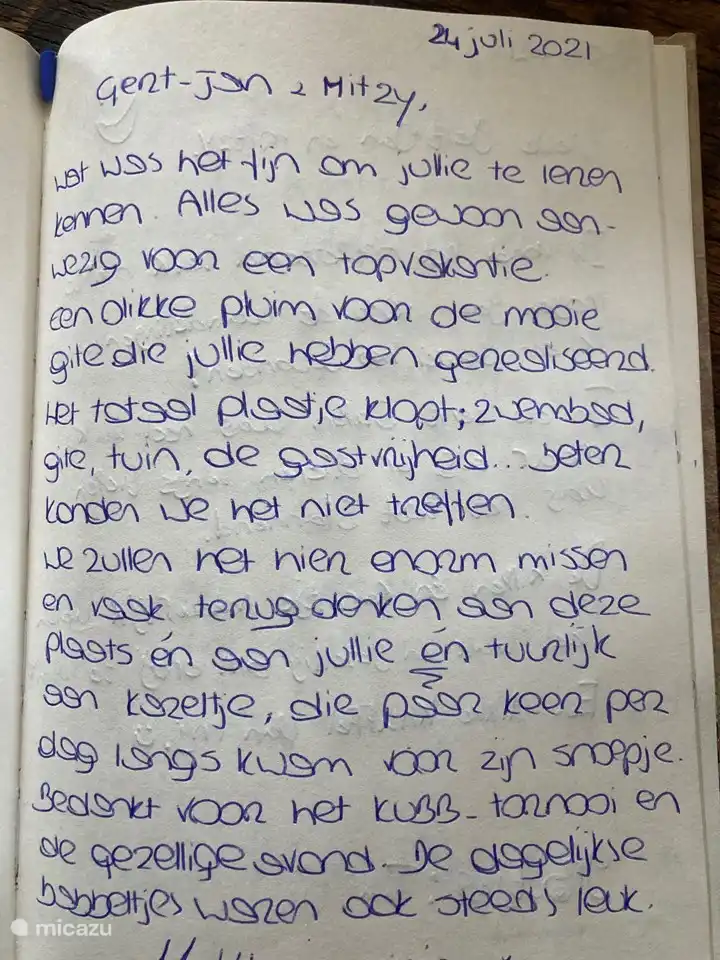 24 juli 2021
Gert-Jan & Mitzy,
wat was het fijn om jullie te leren
kennen. Alles was gewoon aan-
wezig voor een topvakantie.
een dikke pluim voor de mooie
gite die jullie hebben gerealiseerd.
Het totaal plaatje klopt; zwembad,
gite, tuin, de gastvrijheid... beter
konden we het niet treffen.
we zullen het hier enorm missen
en vaak terug denken aan deze
plaats én aan jullie én tuurlijk
aan kazeltje, die paar keer per
dag langs kwam voor zijn snoepje.
Bedankt voor het KUBB-tornooi en
de gezellige avond. De dagelijkse
babbeltjes waren ook steeds leuk.
micazu